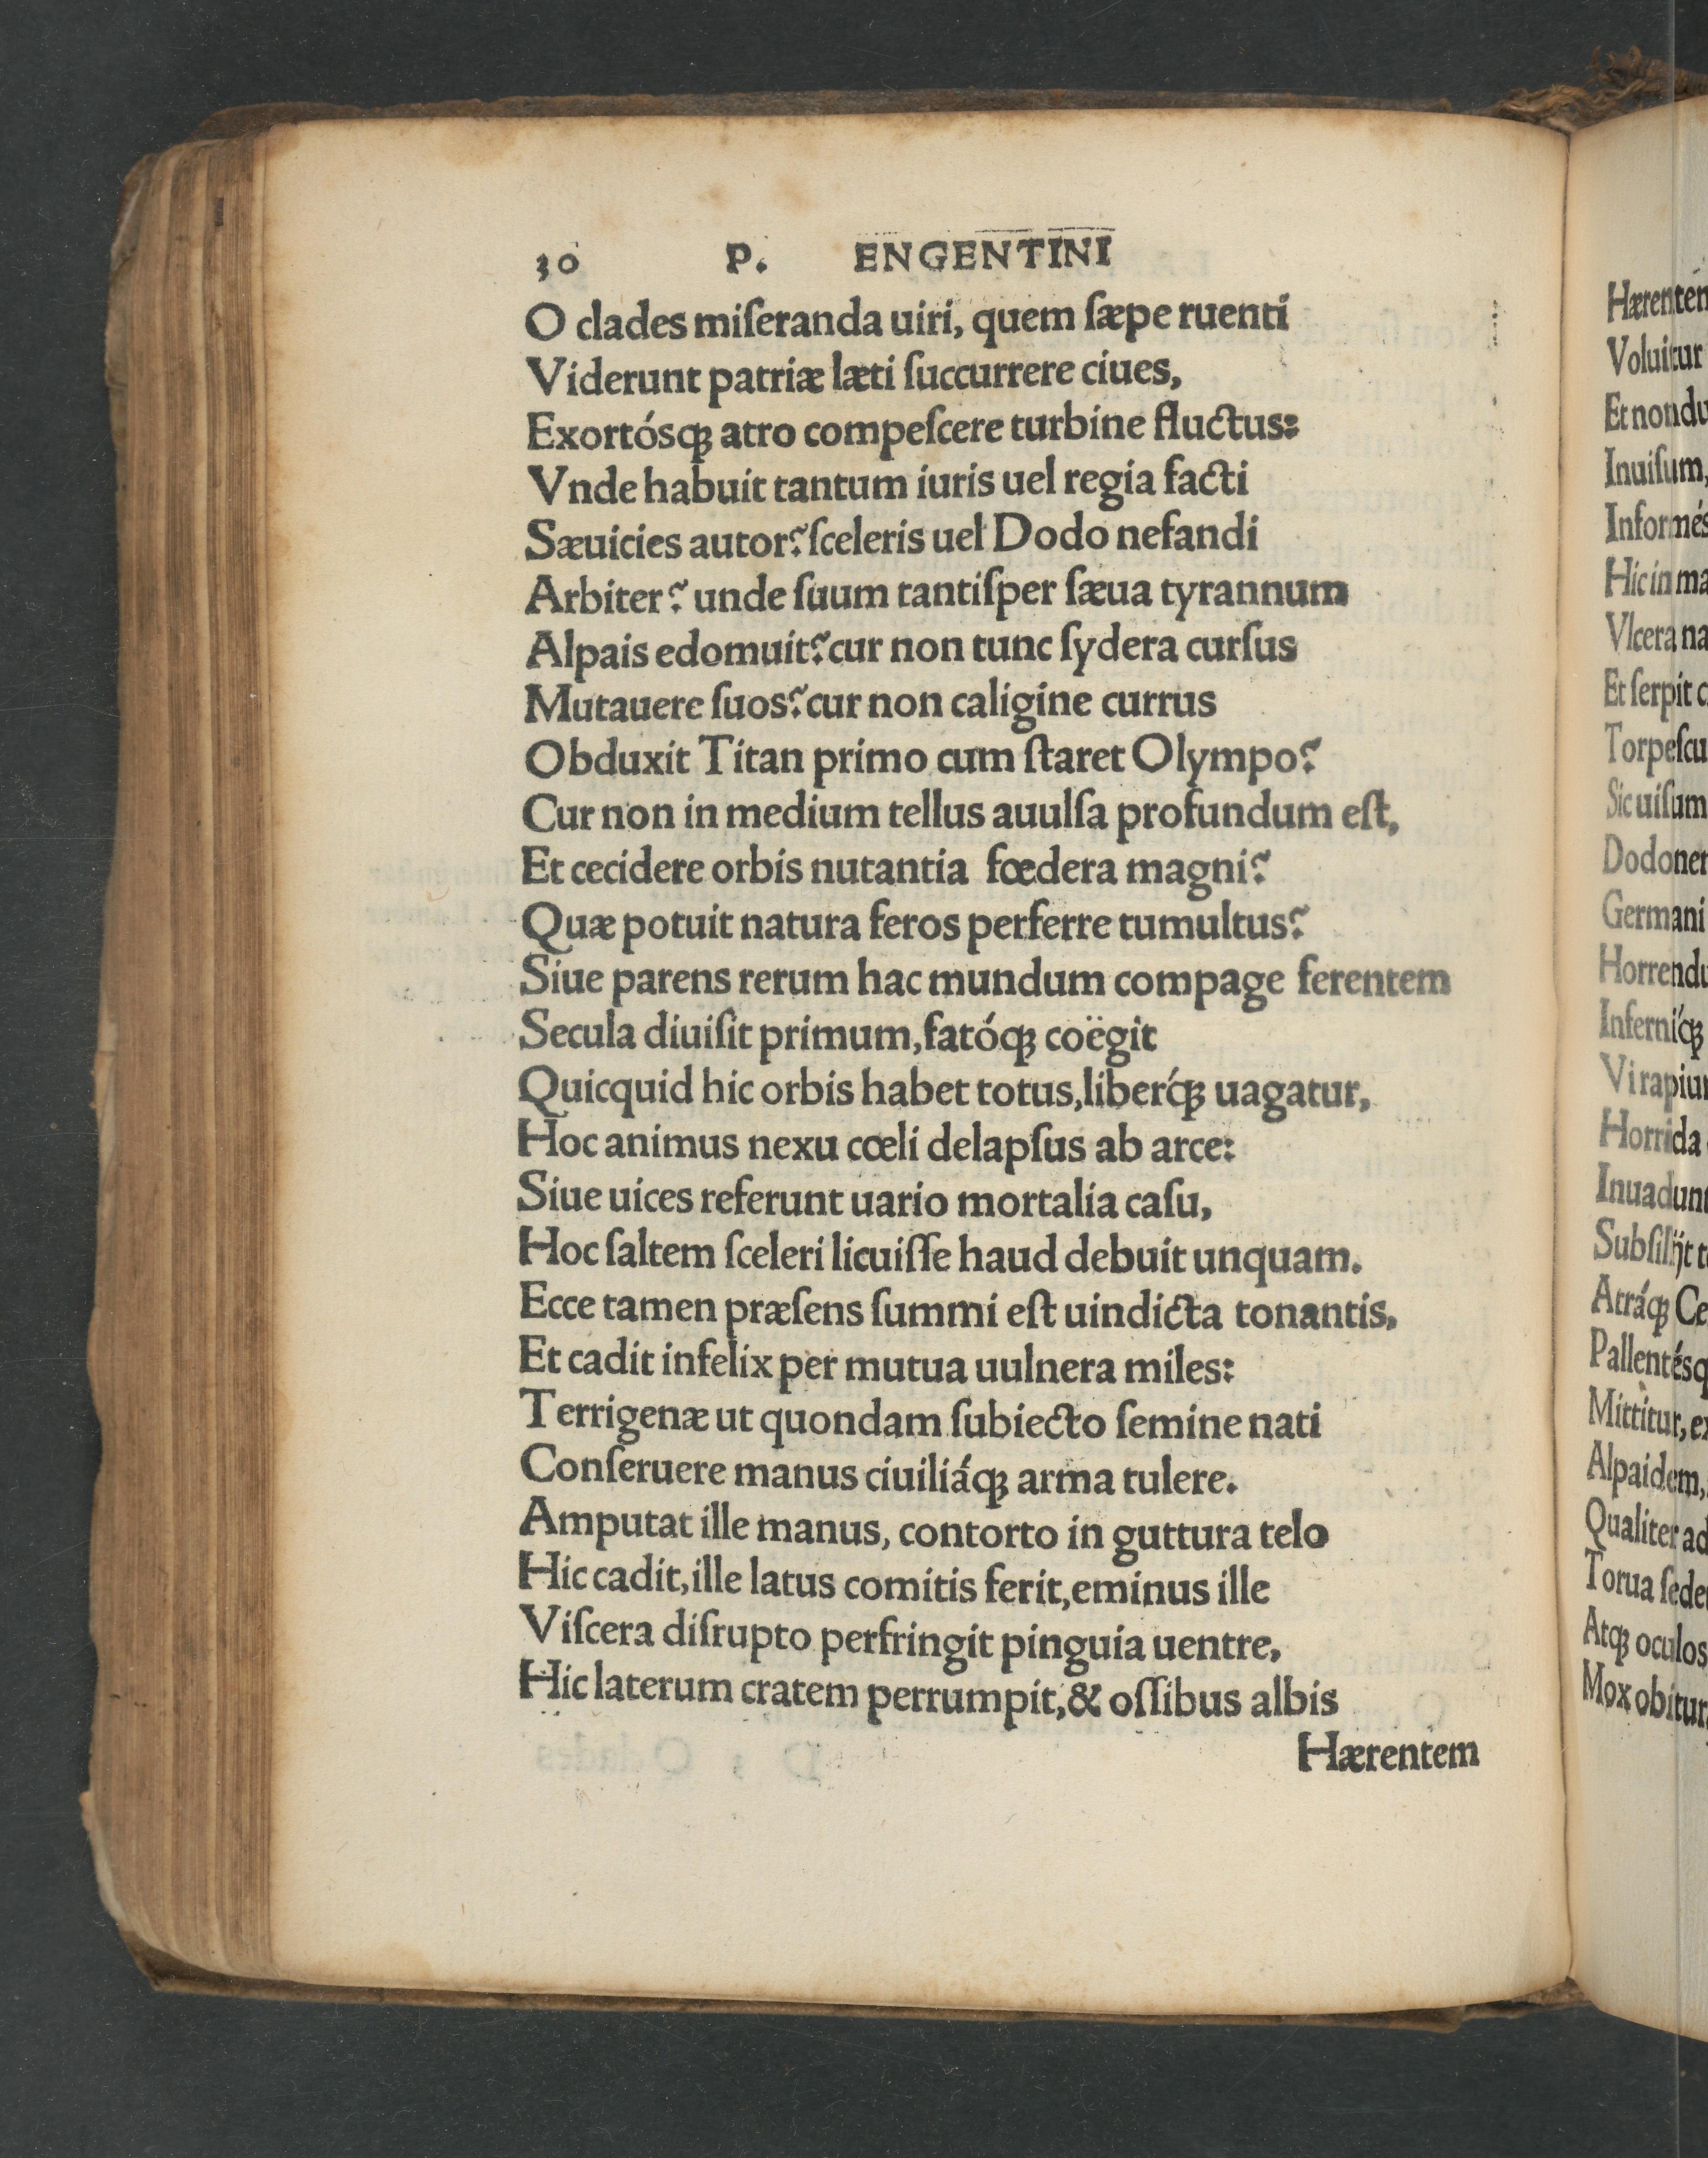 30 P. ENGENTINI
O clades miſeranda uiri, quem ſæpe ruenti
Viderunt patriæ læti ſuccurrere ciues,
Exortósq́ꝫ atro compeſcere turbine fluctus:
Vnde habuit tantum iuris uel regia facti
Sæuicies autor? ſceleris uel Dodo nefandi
Arbiter? unde ſuum tantiſper ſæua tyrannum
Alpais edomuit? cur non tunc ſydera curſus
Mutauere ſuos? cur non caligine currus
Obduxit Titan primo cum ſtaret Olympo?
Cur non in medium tellus auulſa profundum eſt,
Et cecidere orbis nutantia fœdera magni?
Quæ potuit natura feros perferre tumultus?
Siue parens rerum hac mundum compage ferentem
Secula diuiſit primum, fatóqꝫ coëgit
Quicquid hic orbis habet totus, liberq́ꝫ uagatur,
Hoc animus nexu cœli delapſus ab arce:
Siue uices referunt uario mortalia caſu,
Hoc ſaltem ſceleri licuiſſe haud debuit unquam.
Ecce tamen præſens ſummi eſt uindicta tonantis,
Et cadit infelix per mutua uulnera miles:
Terrigenæ ut quondam ſubiecto ſemine nati
Conſeruere manus ciuiliáqꝫ arma tulere.
Amputat ille manus, contorto in guttura telo
Hic cadit, ille latus comitis ferit, eminus ille
Viſcera diſrupto perfringit pinguia uentre,
Hic laterum cratem perrumpit, & oſſibus albis
Hærentem
Hærentem
Voluitur
Et nondu
Inuiſum,
Informés
Hic in ma
Vlcera na
Et ſerpit c
Torpeſcu
Sic uiſum
Dodonen
Germani
Horrendu
Inferníqꝫ
Vi rapiun
Horrida
Inuadunt
Subſilijt t
Atráqꝫ Ce
Pallentésq
Mittitur, ex
Alpaidem,
Qualiter ad
Torua ſede
Atqꝫ oculos
Mox obitur,